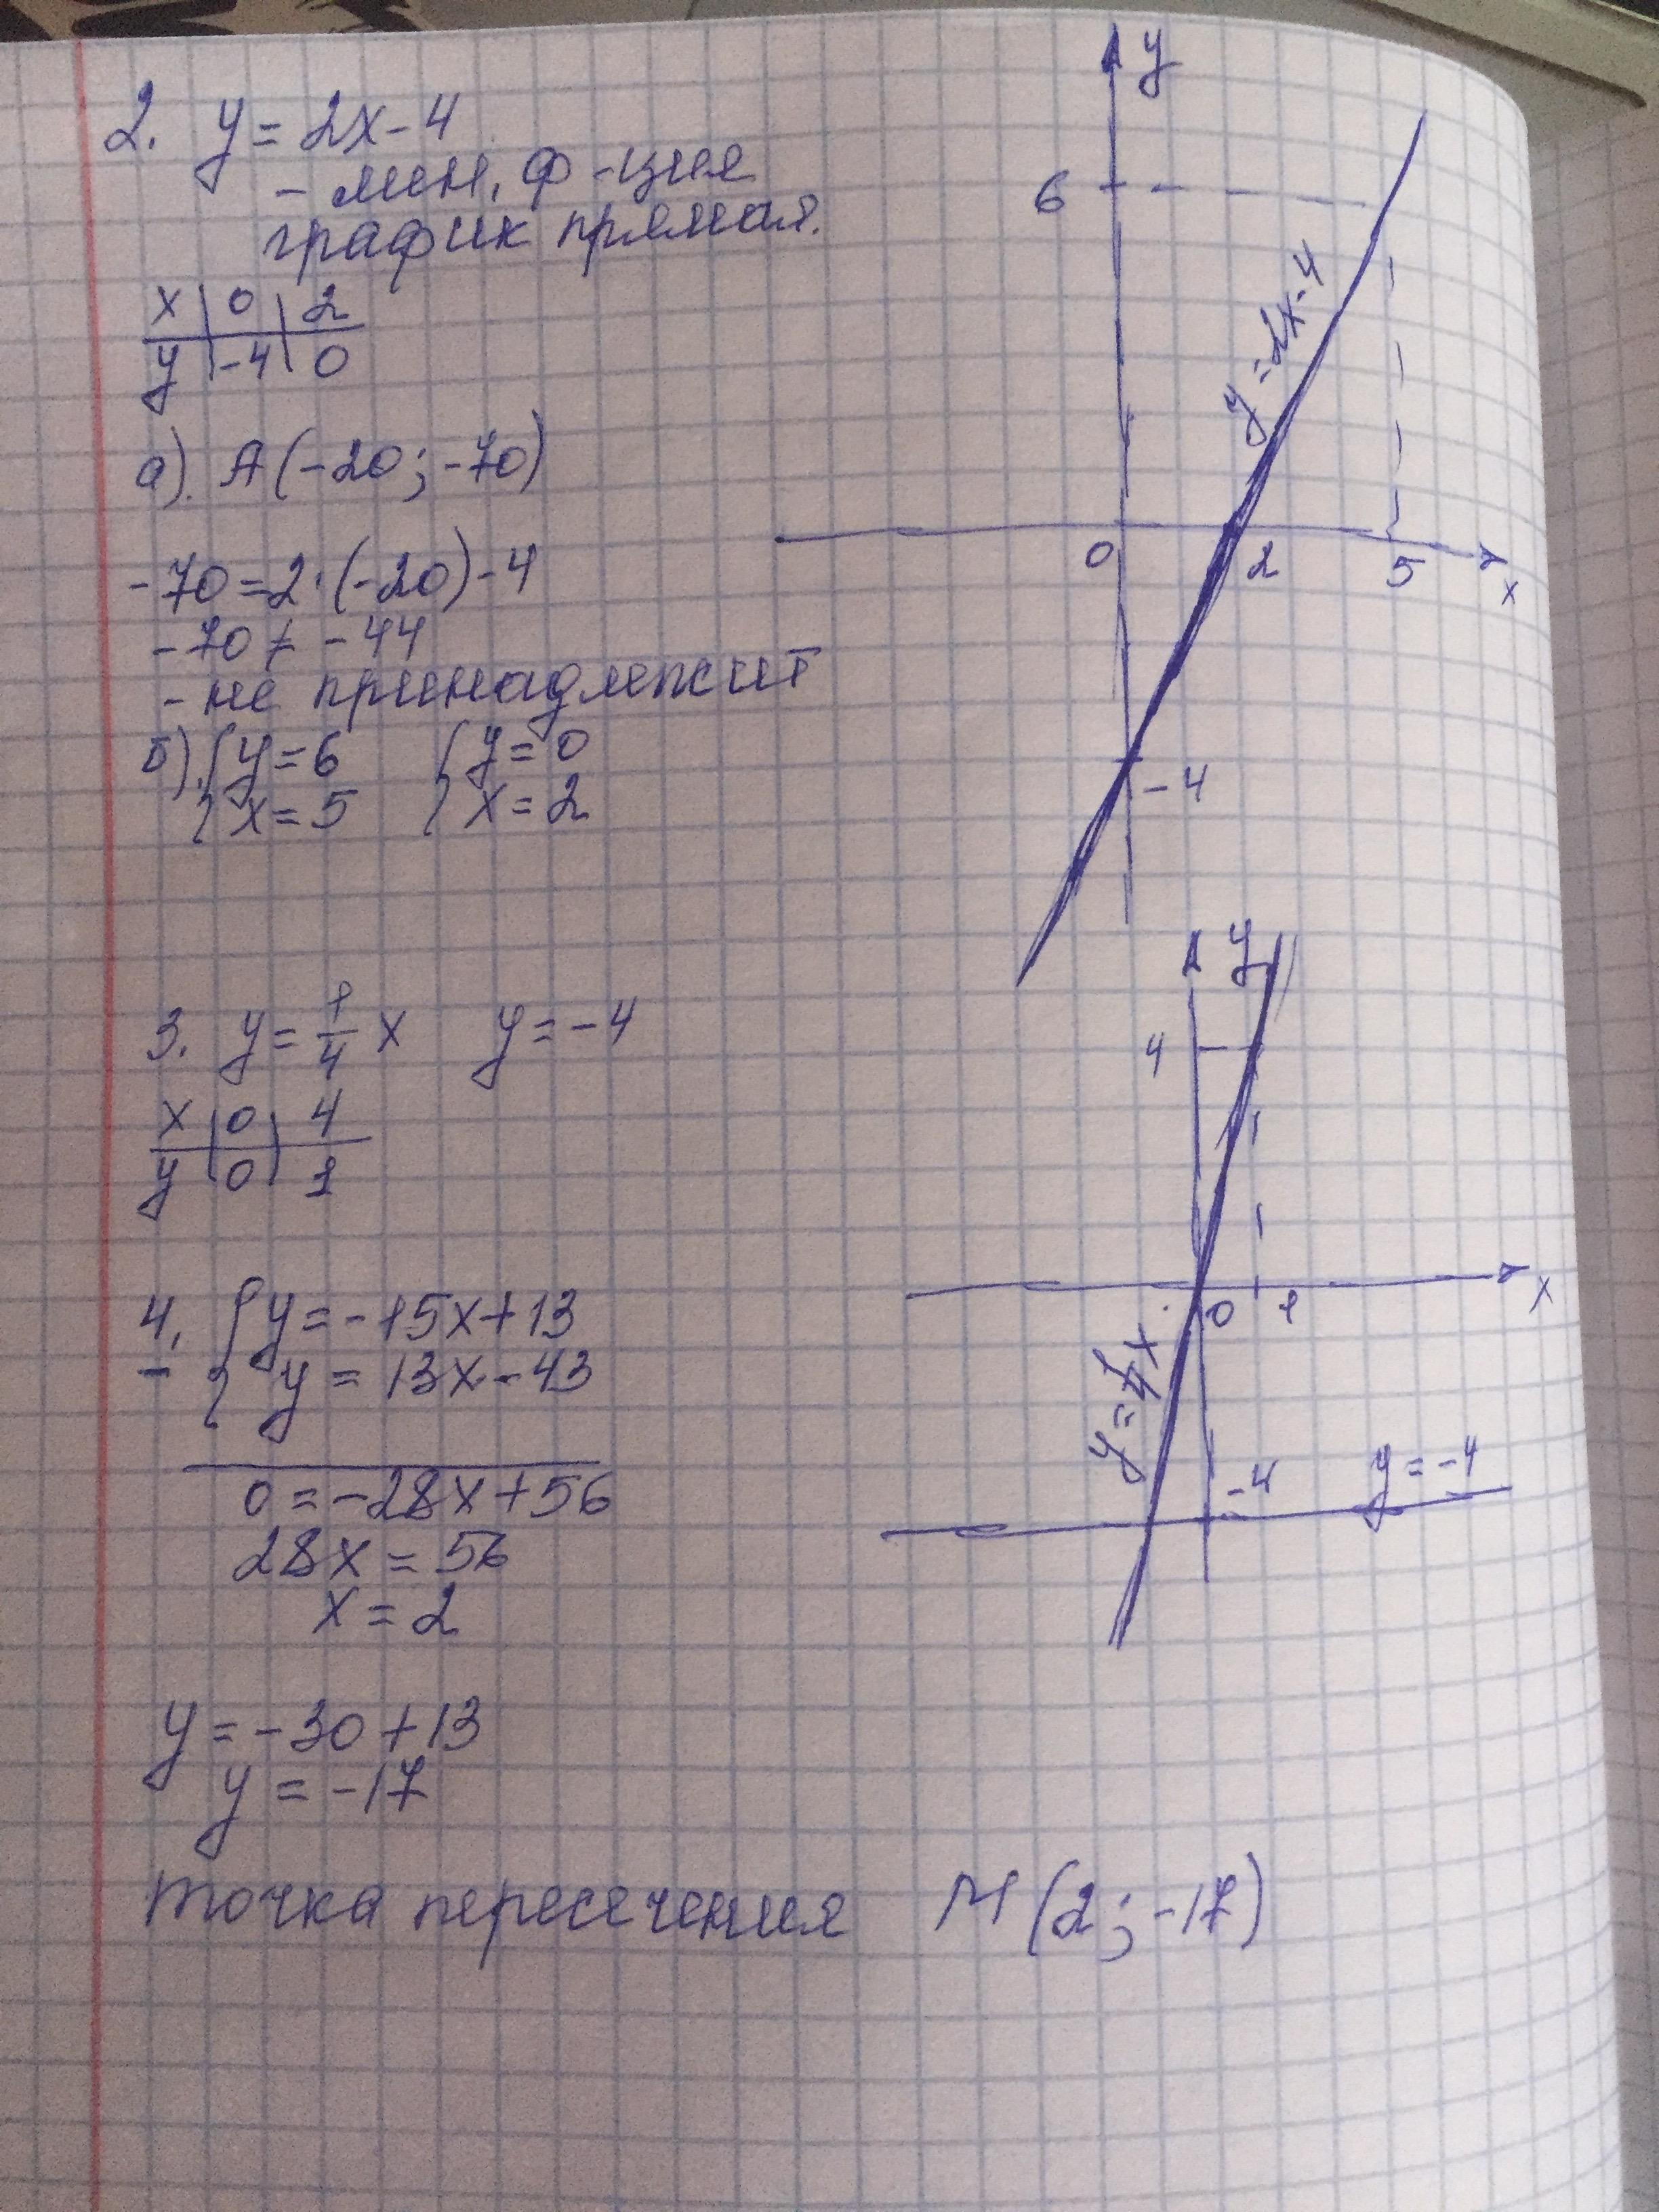 2. y = 2x - 4
- лин. ф-ция
график прямая.
x | 0 | 2
y | -4 | 0
а). A(-20; -70)
-70 = 2·(-20) - 4
-70 ≠ -44
- не принадлежит
б). { y = 6 { y = 0
x = 5 x = 2
y
6
y = 2x - 4
0 2 5 x
-4
3. y = 1/4 x y = -4
x | 0 | 4
y | 0 | 1
y
4
0 1 x
y = 1/4 x
-4 y = -4
4. { y = -15x + 13
- y = 13x - 43
0 = -28x + 56
28x = 56
x = 2
y = -30 + 13
y = -17
точка пересечения M(2; -17)